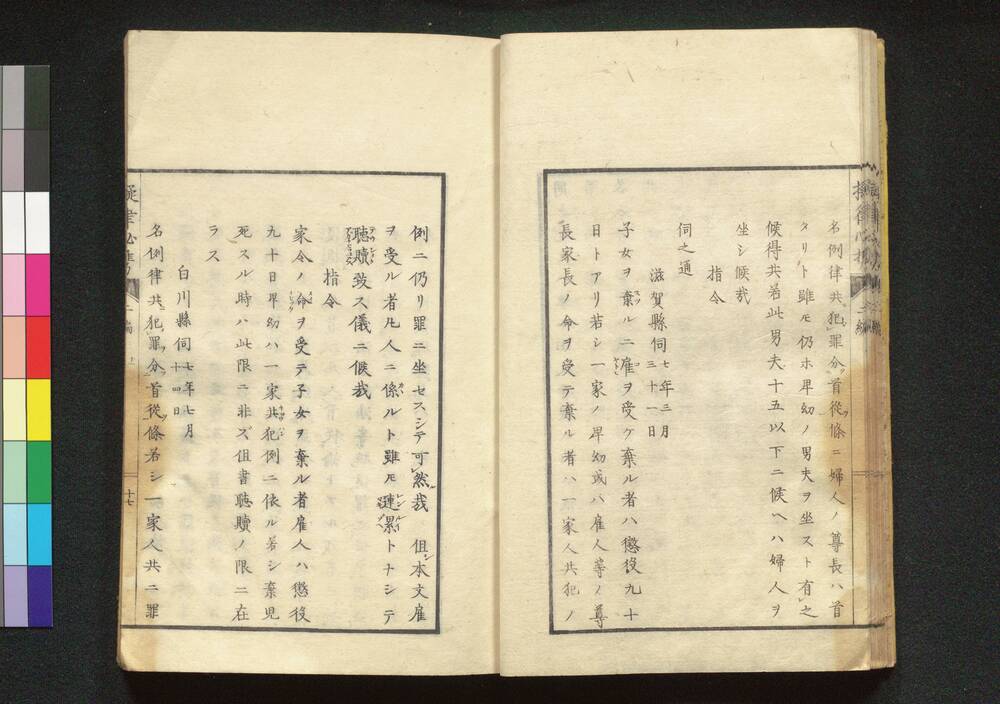 名例律共ニ犯ㇾ罪分ツ首從ヲ條ニ婦人ノ尊長ハ首
タリト雖モ仍ホ卑幼ノ男夫ヲ坐スト有ㇾ之
候得共若此男夫十五以下ニ候ヘハ婦人ヲ
坐シ候哉
指令
伺之通
滋賀縣伺 七年三月三十一日
子女ヲ棄ルニ雇ヲ受ケ棄ル者ハ懲役九十
日トアリ若シ一家ノ卑幼或ハ雇人等ノ尊
長家長ノ命ヲ受テ棄ル者ハ一家人共犯ノ
例ニ仍リ罪ニ坐セスシテ可ㇾ然哉 但シ本文雇
ヲ受ル者凡人ニ係ルト雖モ連累トナシテ
聽贖致ス儀ニ候哉
指令
家令ノ命ヲ受テ子女ヲ棄ル者雇人ハ懲役
九十日卑幼ハ一家共犯例ニ依ル若シ棄児
死スル時ハ此限ニ非ズ但書聽贖ノ限ニ在
ラス
白川縣伺 七年七月十四日
名例律共ニ犯ㇾ罪分ツ首從ヲ條若シ一家人共ニ罪
擬律必携
二編
十七